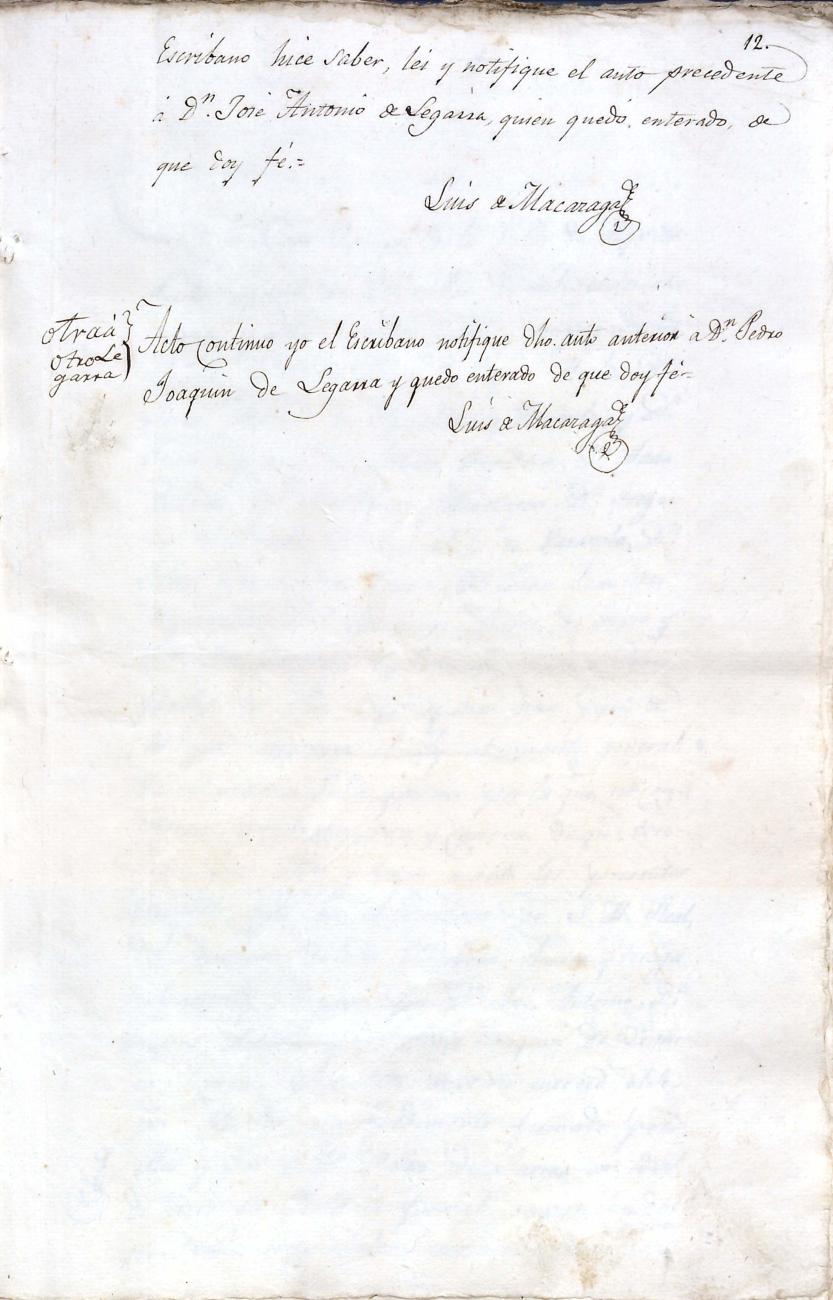 12.
Escribano hice saber, lei y notifique el auto precedente
á Dn. José Antonio de Legarra, quien quedó enterado, de
que doy fé.=
Luis de Macaraga
otra á
otro Le
garra
Acto continuo yo el Escribano notifique dho. auto anterior á Dn. Pedro
Joaquin de Legarra y quedo enterado de que doy fé=
Luis de Macaraga